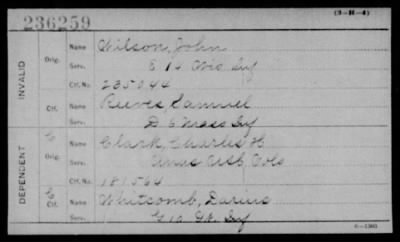 (3-H-4)
236259
INVALID
Orig. Name Wilson, John
Serv. E 16 Wis. Inf
Ctf. No. 235044
Ctf. Name Reeves, Samuel
Serv. D 6 Mass Inf
DEPENDENT
Orig. Name Clark, Charles H
Serv. Unas USC Vols
Ctf. No. 181564
Ctf. Name Whitcomb, Darius
Serv. G 10 Inf